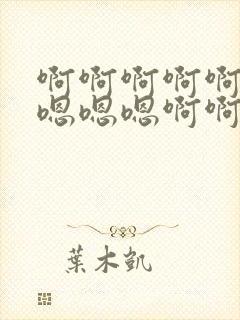 啊啊啊啊啊
嗯嗯嗯啊啊
葉木凱